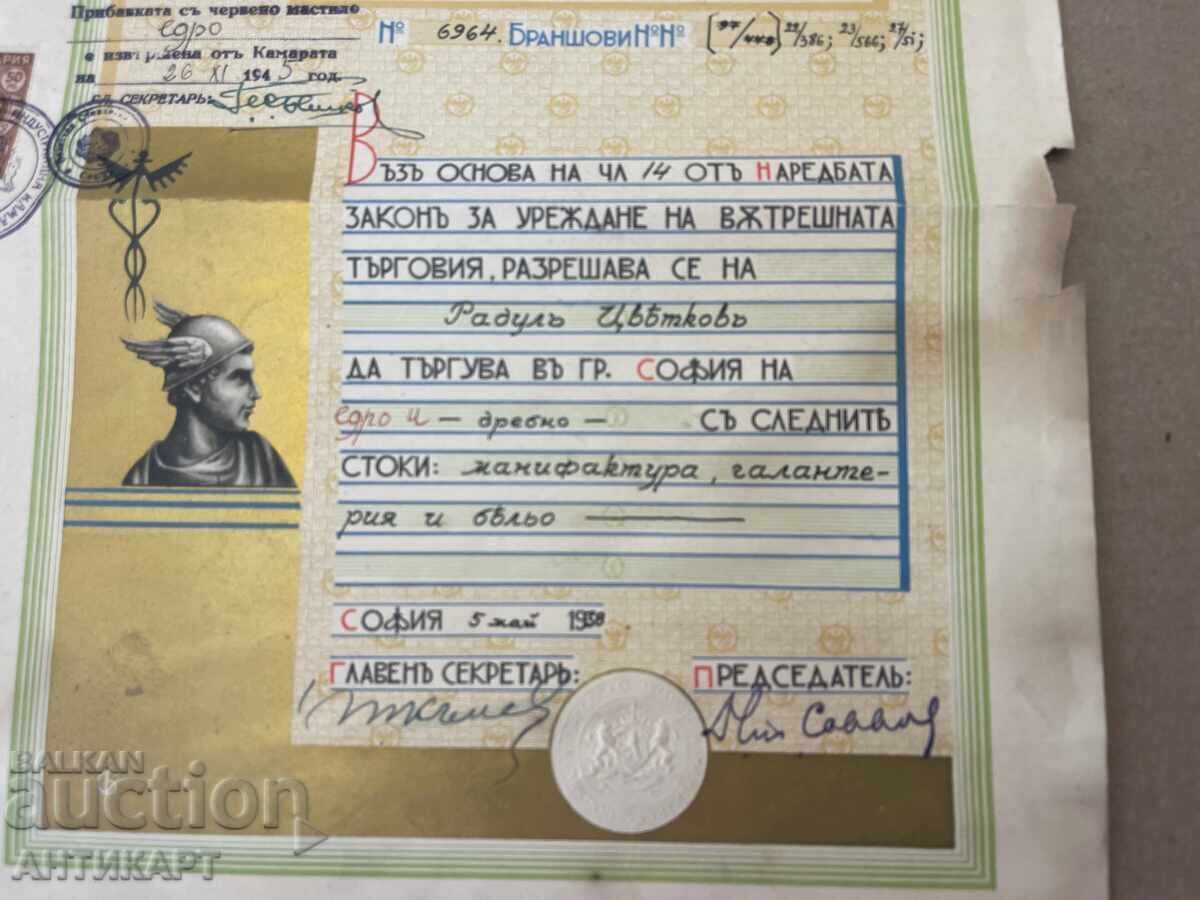 Прибавката съ червено мастило
едро
е извършена отъ Камарата
на 26 XI 1945 год.
ГЛ. СЕКРЕТАРЬ:
№ 6964. БРАНШОВИ №№ 22/386; 23/566; 27/51;
ВЪЗЪ ОСНОВА НА ЧЛ 14 ОТЪ НАРЕДБАТА
ЗАКОНЪ ЗА УРЕЖДАНЕ НА ВѪТРЕШНАТА
ТЪРГОВИЯ, РАЗРЕШАВА СЕ НА
Радулъ Цвѣтковъ
ДА ТЪРГУВА ВЪ ГР. СОФИЯ НА
едро и — дребно — СЪ СЛЕДНИТѢ
СТОКИ: манифактура, галанте-
рия и бѣльо —
СОФИЯ 5 май 1939
ГЛАВЕНЪ СЕКРЕТАРЬ: ПРЕДСЕДАТЕЛЬ:
BALKAN
auction
АНТИКАРТ